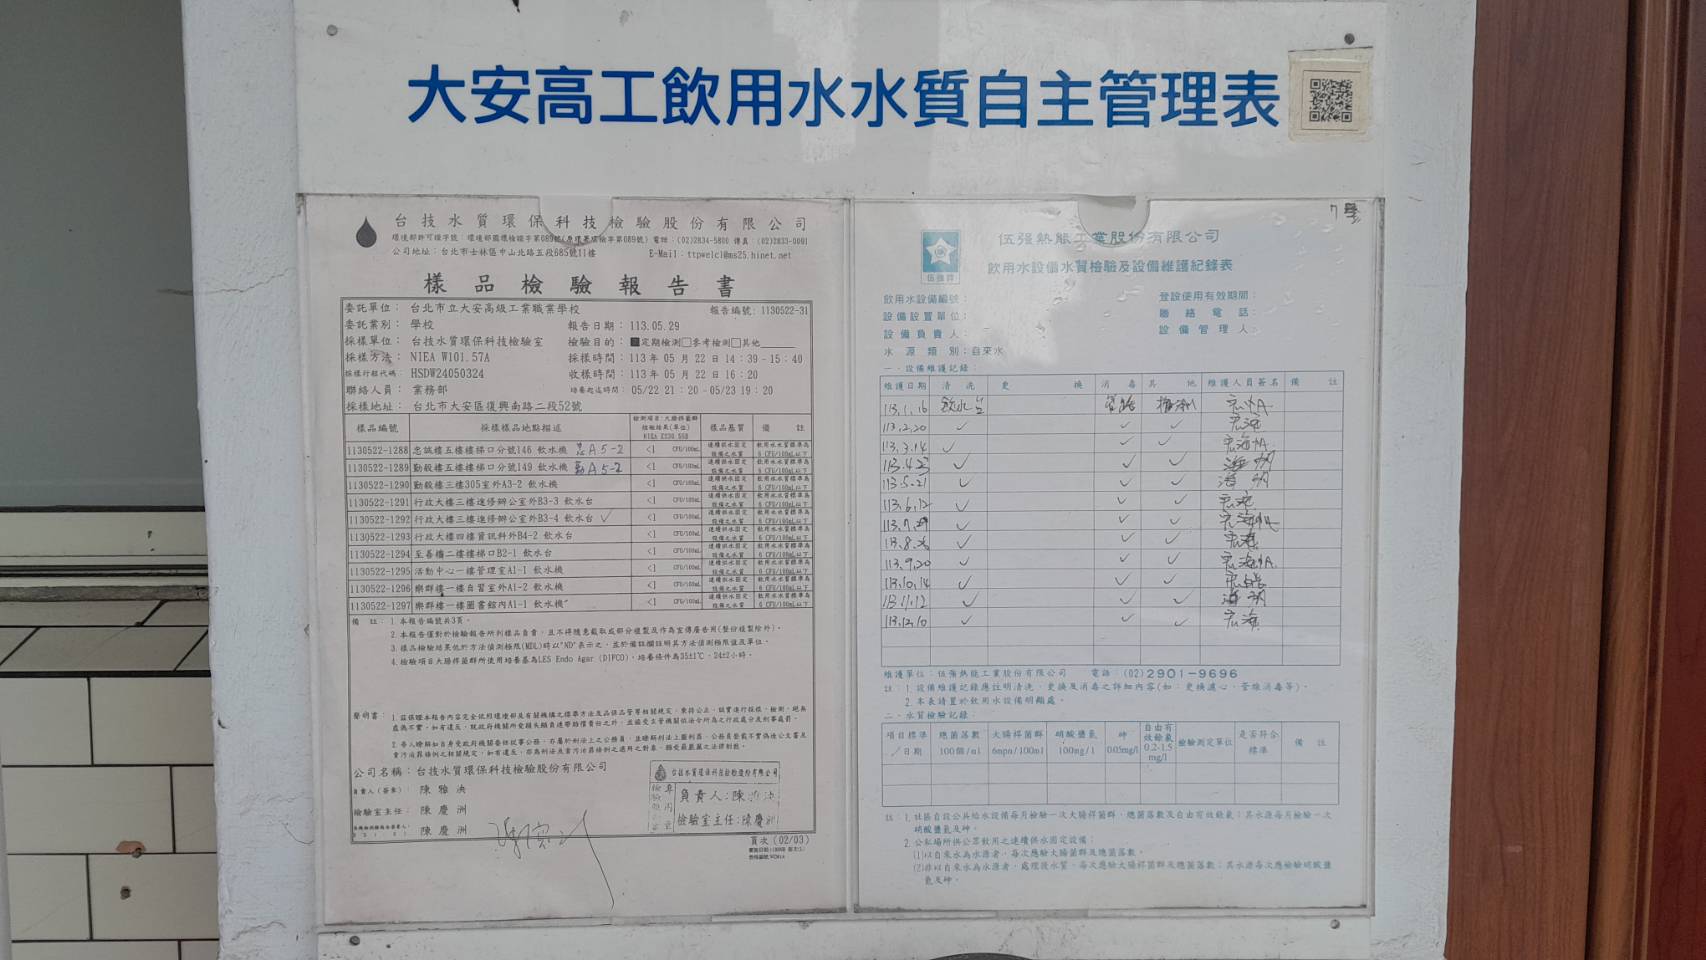 大安高工飲用水水質自主管理表
台技水質環保科技檢驗股份有限公司
環境部許可證字號：環境部國環檢證字第089號(原環署環檢字第089號) 電話：(02)2834-5800 傳真：(02)2833-0091
公司地址：台北市士林區中山北路五段685號11樓 E-Mail：ttpwelcl@ms25.hinet.net
樣品檢驗報告書
委託單位：台北市立大安高級工業職業學校 報告編號：1130522-31
委託業別：學校 報告日期：113.05.29
採樣單位：台技水質環保科技檢驗室 檢驗目的：■定期檢測□參考檢測□其他
採樣方法：NIEA W101.57A 採樣時間：113 年 05 月 22 日 14：39－15：40
採樣行程代碼：HSDW24050324 收樣時間：113 年 05 月 22 日 16：20
聯絡人員：業務部 培養起迄時間：05/22 21：20－05/23 19：20
採樣地址：台北市大安區復興南路二段52號
樣品編號 採樣樣品地點描述 檢測項目：大腸桿菌群 檢驗結果(單位) NIEA E230.55B 樣品基質 備註
1130522-1288 忠誠樓五樓樓梯口分號146 飲水機 忠A5-2 <1 CFU/100mL 連續供水固定設備之水質 飲用水水質標準為 6 CFU/100mL以下
1130522-1289 勤毅樓五樓樓梯口分號149 飲水機 勤A5-2 <1 CFU/100mL 連續供水固定設備之水質 飲用水水質標準為 6 CFU/100mL以下
1130522-1290 勤毅樓三樓305室外A3-2 飲水機 <1 CFU/100mL 連續供水固定設備之水質 飲用水水質標準為 6 CFU/100mL以下
1130522-1291 行政大樓三樓進修辦公室外B3-3 飲水台 <1 CFU/100mL 連續供水固定設備之水質 飲用水水質標準為 6 CFU/100mL以下
1130522-1292 行政大樓三樓進修辦公室外B3-4 飲水台 ✓ <1 CFU/100mL 連續供水固定設備之水質 飲用水水質標準為 6 CFU/100mL以下
1130522-1293 行政大樓四樓資訊科外B4-2 飲水台 <1 CFU/100mL 連續供水固定設備之水質 飲用水水質標準為 6 CFU/100mL以下
1130522-1294 至善樓二樓樓梯口B2-1 飲水台 <1 CFU/100mL 連續供水固定設備之水質 飲用水水質標準為 6 CFU/100mL以下
1130522-1295 活動中心一樓管理室A1-1 飲水機 <1 CFU/100mL 連續供水固定設備之水質 飲用水水質標準為 6 CFU/100mL以下
1130522-1296 樂群樓一樓自習室外A1-2 飲水機 <1 CFU/100mL 連續供水固定設備之水質 飲用水水質標準為 6 CFU/100mL以下
1130522-1297 樂群樓一樓圖書館內A1-1 飲水機 <1 CFU/100mL 連續供水固定設備之水質 飲用水水質標準為 6 CFU/100mL以下
備註：1.本報告編號共3頁。
2.本報告僅對於檢驗報告所列樣品負責，且不得隨意截取或部分複製及作為宣傳廣告用(整份複製除外)。
3.樣品檢驗結果低於方法偵測極限(MDL)時以"ND"表示之，並於備註欄註明其方法偵測極限值及單位。
4.檢驗項目大腸桿菌群所使用培養基為LES Endo Agar (DIFCO)，培養條件為35±1℃，24±2小時。
聲明書：1.茲保證本報告內容完全依照環境部及有關機構之標準方法及品保品管等相關規定，秉持公正、誠實進行採樣、檢測。絕無
虛偽不實，如有違反，就政府機關所受損失願負連帶賠償責任之外，並接受主管機關依法令所為之行政處分及刑事處罰。
公司名稱：台技水質環保科技檢驗股份有限公司
負責人(簽章)：陳雅洟
檢驗室主任：陳慶洲
陳慶洲
台技水質環保科技檢驗股份有限公司
負責人：陳
檢驗室主任：陳慶洲
頁次（02/03）
伍強熱能工業股份有限公司
伍強牌
飲用水設備水質檢驗及設備維護紀錄表
飲用水設備編號： 登設使用有效期間：
設備設置單位： 聯絡電話：
設備負責人： 設備管理人：
水源類別：自來水
一、設備維護記錄：
維護日期 清洗 更換 消毒 其他 維護人員簽名 備註
113.1.16 飲水台
113.2.20 ✓ ✓ ✓
113.3.14 ✓ ✓ ✓
113.4.23 ✓ ✓ ✓
113.5.21 ✓ ✓ ✓
113.6.12 ✓ ✓ ✓
✓ ✓ ✓
✓ ✓ ✓
113.9.20 ✓ ✓ ✓
113.10.14 ✓ ✓ ✓
113.11.12 ✓ ✓ ✓
113.12.10 ✓ ✓ ✓
維護單位：伍強熱能工業股份有限公司 電話：(02)2901-9696
註：1.設備維護記錄應註明清洗、更換及消毒之詳細內容(如：更換濾心、管線消毒等)。
2.本表請置於飲用水設備明顯處。
二、水質檢驗記錄：
項目標準／日期 總菌落數 100個/ml 大腸桿菌群 6mpn/100ml 硝酸鹽氮 100mg/l 砷 0.05mg/l 自由有效餘氯 0.2-1.5 mg/l 檢驗測定單位 是否符合標準 備註
註：1.社區自設公共給水設備每月檢驗一次大腸桿菌群、總菌落數及自由有效餘氯；其水源每月檢驗一次
硝酸鹽氮及砷。
2.公私場所供公眾飲用之連續供水固定設備：
⑴以自來水為水源者，每次應驗大腸菌群及總菌落數。
⑵非以自來水為水源者，處理後水質，每次應驗大腸桿菌群及總菌落數；其水源每次應檢驗硝酸鹽
氮及砷。